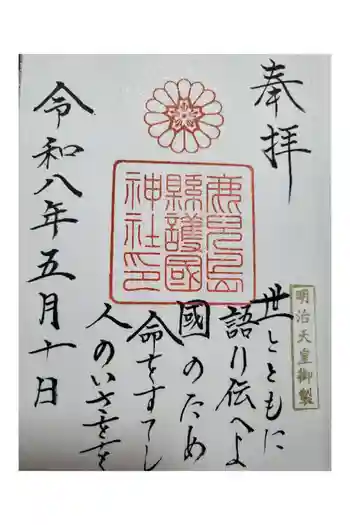 奉拝
明治天皇御製
世とともに
語り伝へよ
國のため
命をすてし
人のいさをを
鹿児島
縣護國
神社印
令和八年五月十日